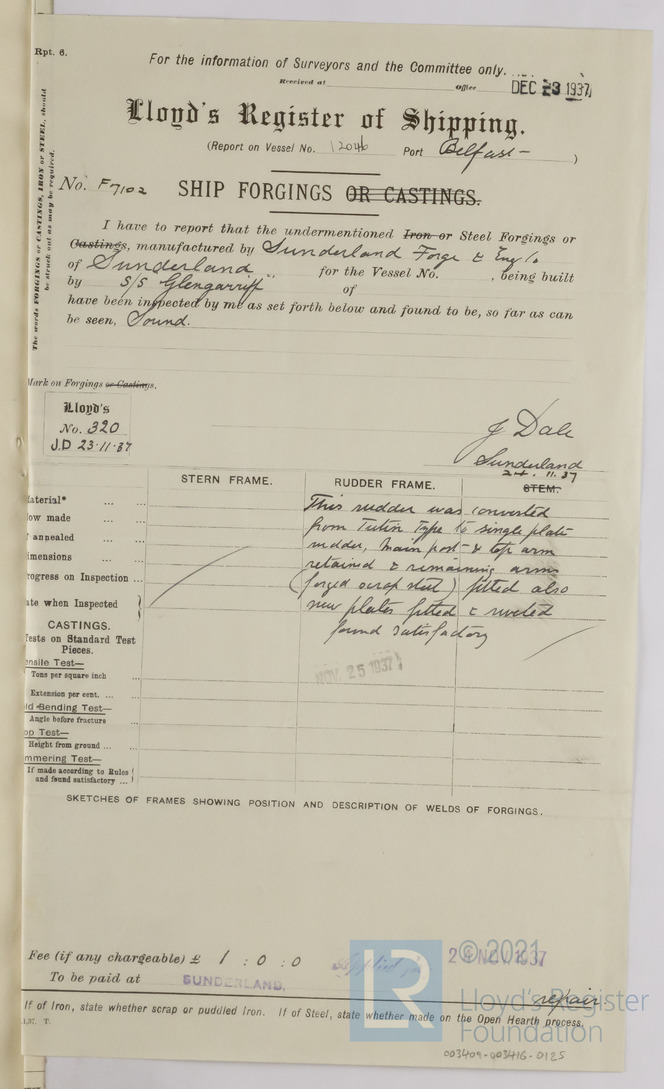 Rpt. 6.
For the information of Surveyors and the Committee only.
Received at Office DEC 23 1937
Lloyd's Register of Shipping.
(Report on Vessel No. 12046 Port Belfast)
No. F7102 SHIP FORGINGS OR CASTINGS.
The words FORGINGS or CASTINGS, IRON or STEEL, should
be struck out as may be required.
I have to report that the undermentioned Iron or Steel Forgings or
Castings, manufactured by Sunderland Forge & Eng Co
of Sunderland for the Vessel No. , being built
by S/S Glengarriff of
have been inspected by me as set forth below and found to be, so far as can
be seen, Sound.
Mark on Forgings or Castings.
Lloyd's
No. 320
J.D 23.11.37
J Dale
Sunderland
24. 11. 37
STERN FRAME. RUDDER FRAME. STEM.
aterial* ... ...
ow made ... ...
annealed ... ...
imensions ... ...
rogress on Inspection ...
ate when Inspected
This rudder was converted
from Tutin Type to single plate
rudder, main post & top arm
retained & remaining arms
(forged scrap steel) fitted also
new plates fitted & riveted
found satisfactory
CASTINGS.
Tests on Standard Test
Pieces.
NOV. 25 1937
ensile Test—
Tons per square inch ...
Extension per cent. ... ...
ld Bending Test—
Angle before fracture ...
op Test—
Height from ground ... ...
mmering Test—
If made according to Rules
and found satisfactory ...
SKETCHES OF FRAMES SHOWING POSITION AND DESCRIPTION OF WELDS OF FORGINGS.
Fee (if any chargeable) £ 1 : 0 : 0 Applied for 24 NOV. 1937
To be paid at SUNDERLAND.
repair
If of Iron, state whether scrap or puddled Iron. If of Steel, state whether made on the Open Hearth process.
LR © 2021
Lloyd's Register
Foundation
003409-003416-0125